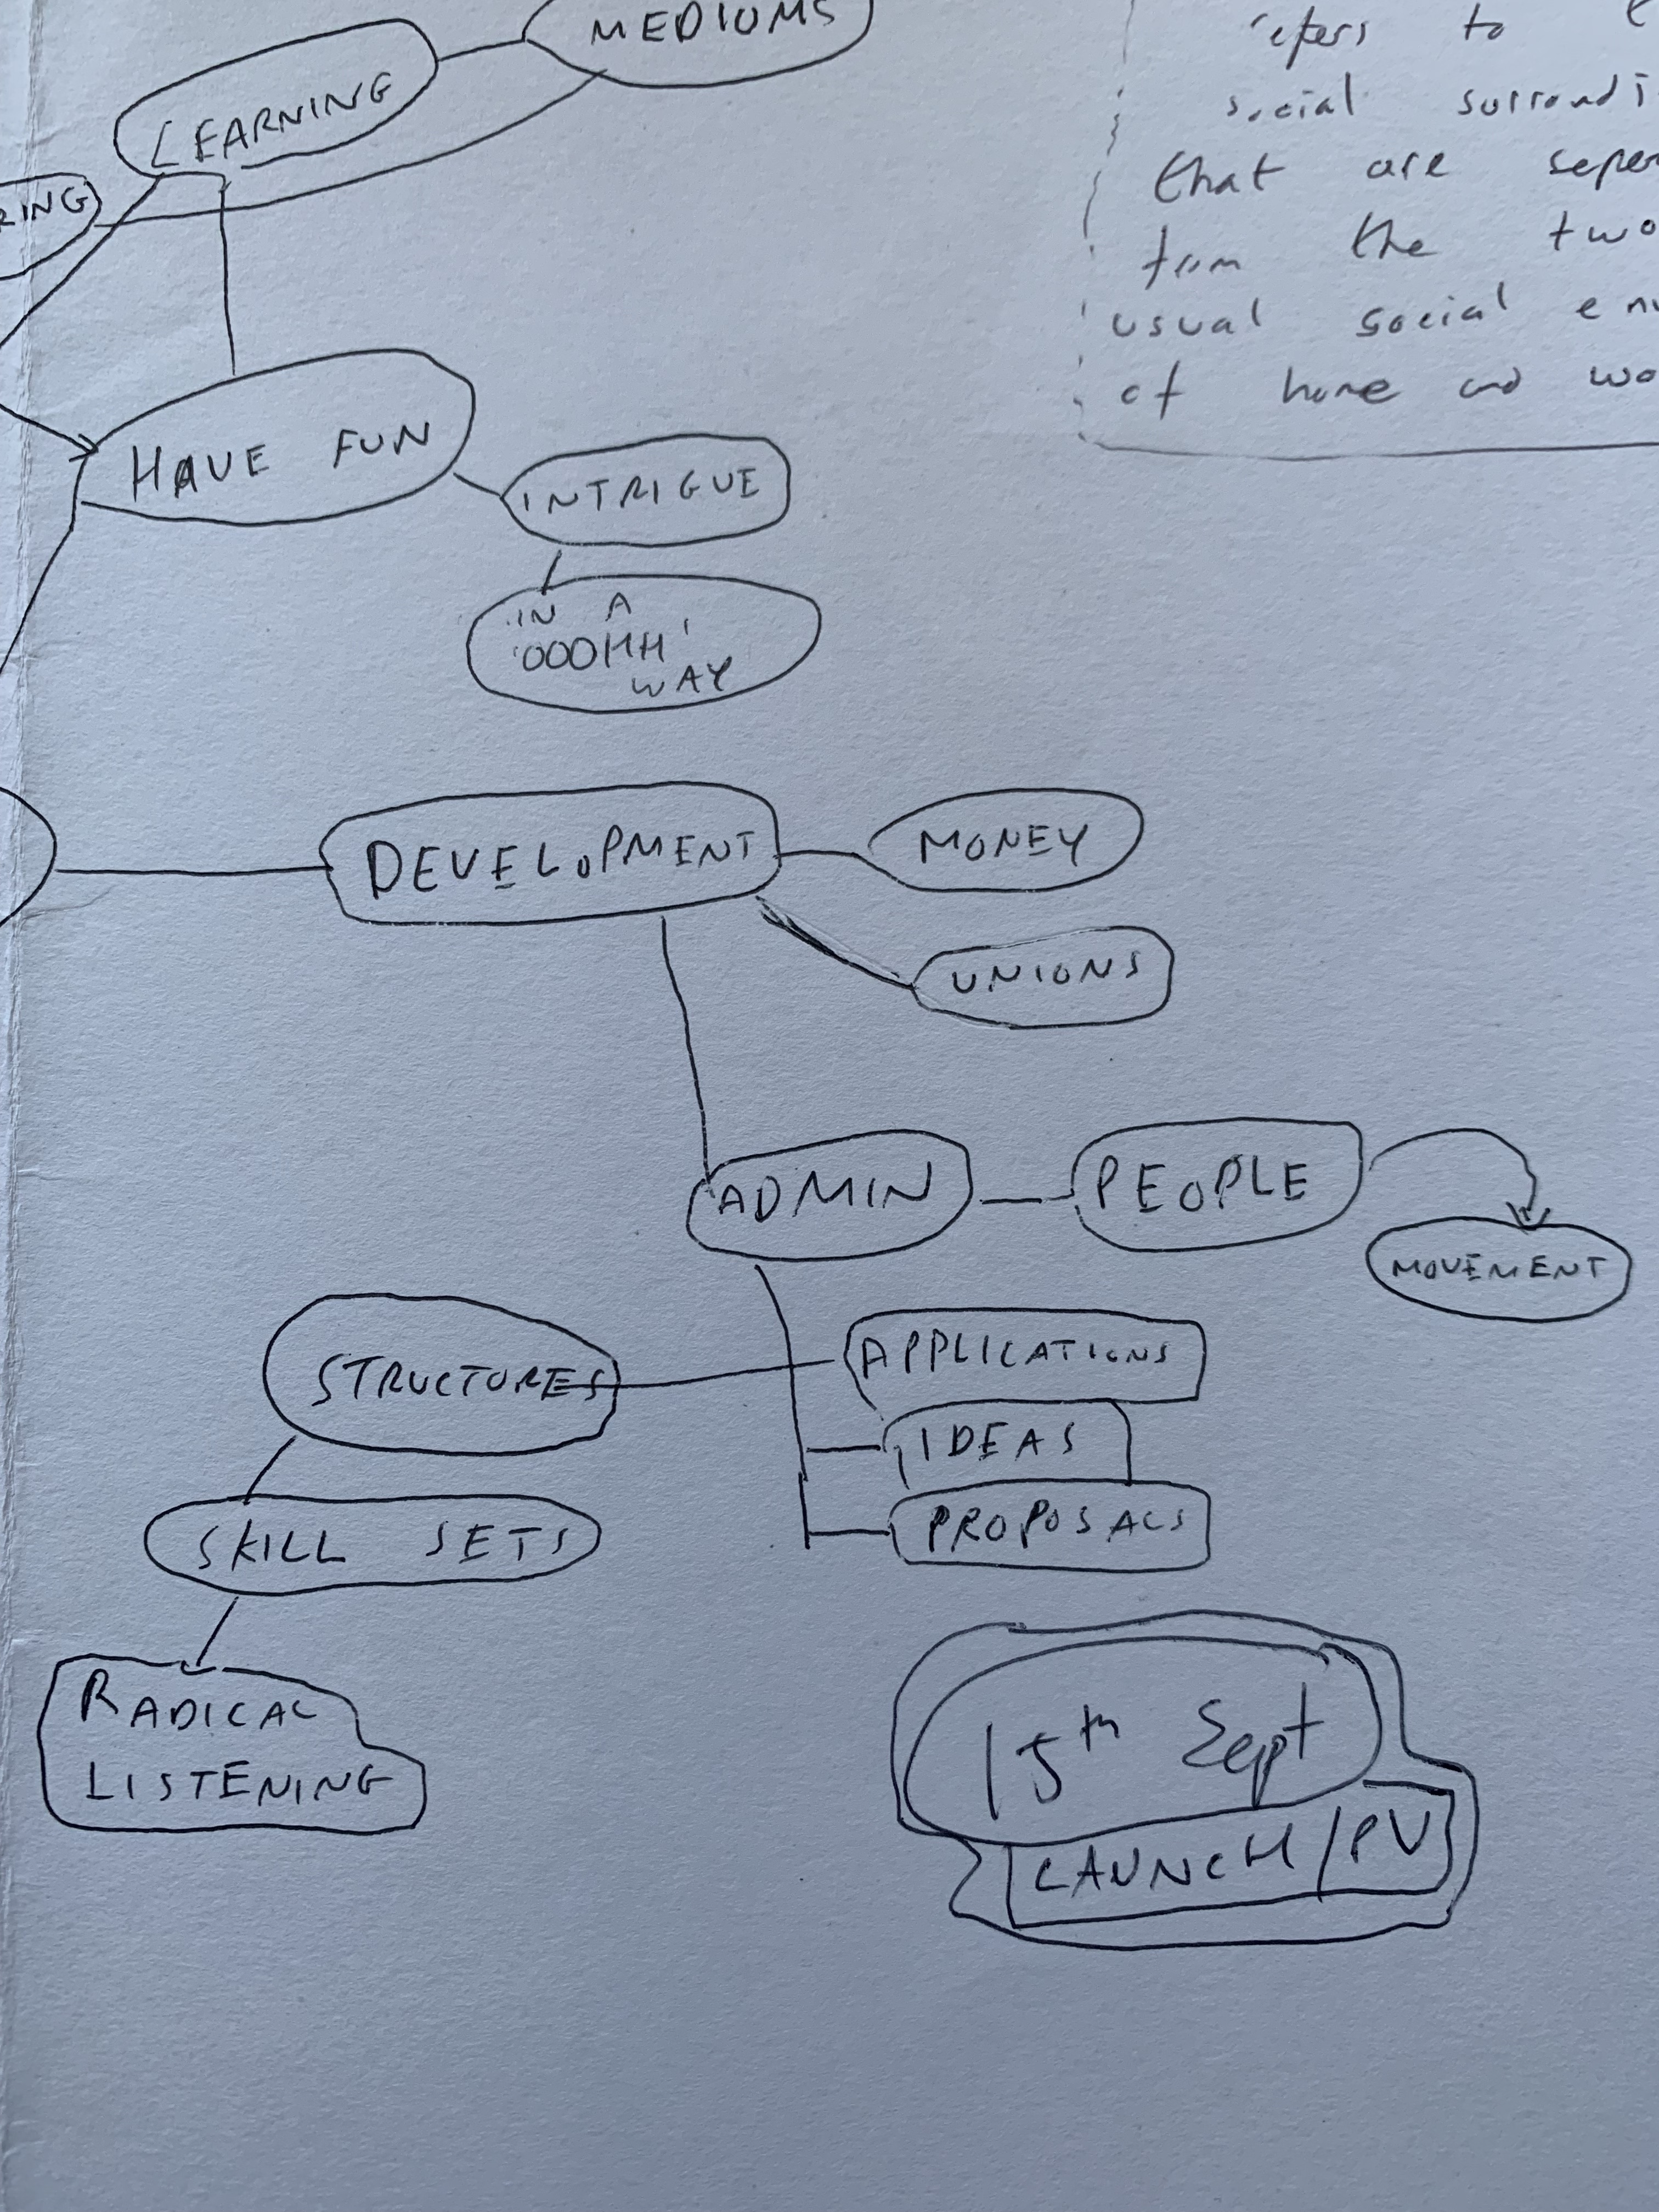 MEDIUMS
LEARNING
RING
HAVE FUN
INTRIGUE
IN A
'OOOHH'
WAY
to
social
that are
from the two
usual social
of home and
DEVELOPMENT
MONEY
UNIONS
ADMIN
PEOPLE
MOVEMENT
STRUCTURES
APPLICATIONS
IDEAS
PROPOSALS
SKILL SETS
RADICAL
LISTENING
15th Sept
LAUNCH/PV